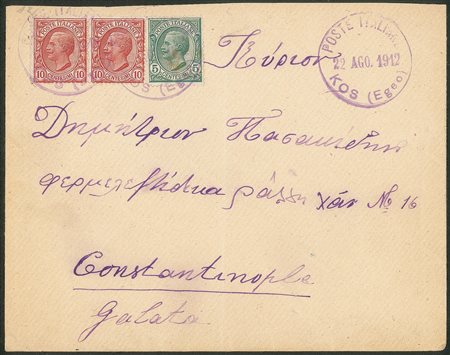 POSTE ITALIANE POSTE ITALIANE POSTE ITALIANE
10 CENTESIMI 10 10 CENTESIMI 10 5 CENTESIMI 5
POSTE ITALIANE
22 AGO. 1912
KOS (Egeo)
KOS (Egeo)
Κύριον
Δημήτριον Πασακίδην
ράλλη χάν № 16
Constantinople
Galata